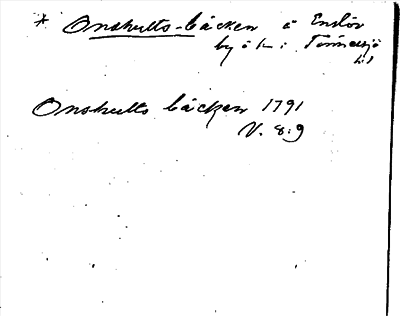 * Onshults-bäcken å Enslöv
by ö k i Tönnersjö
hd
Onshults bäcken 1791
V. 8:9